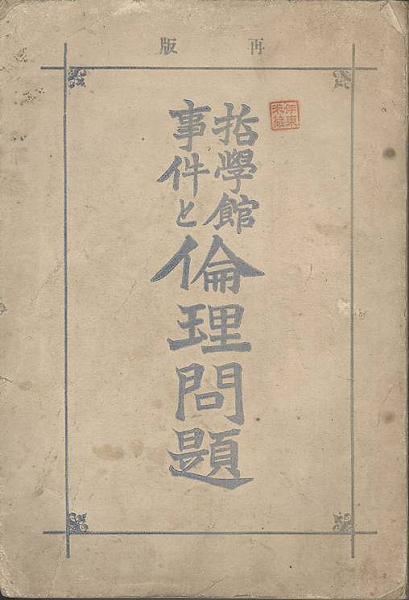 再版
哲學館
事件と
倫理問題